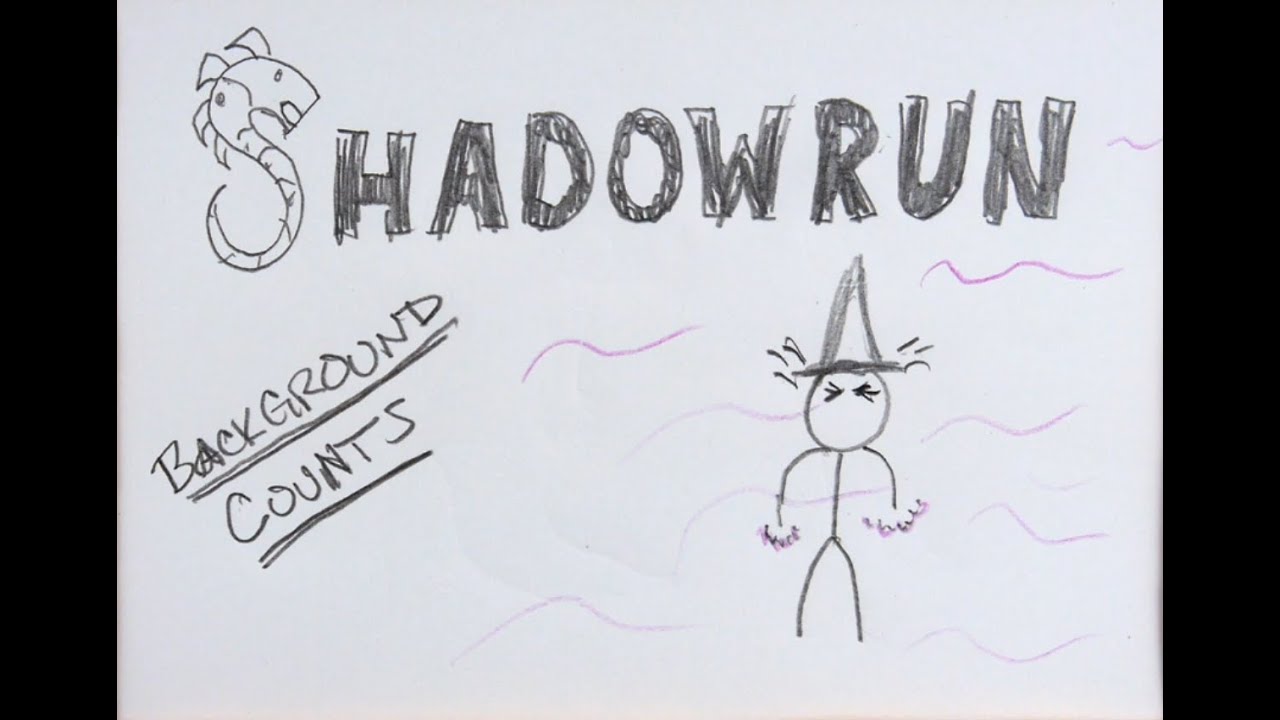 SHADOWRUN
BACKGROUND
COUNTS